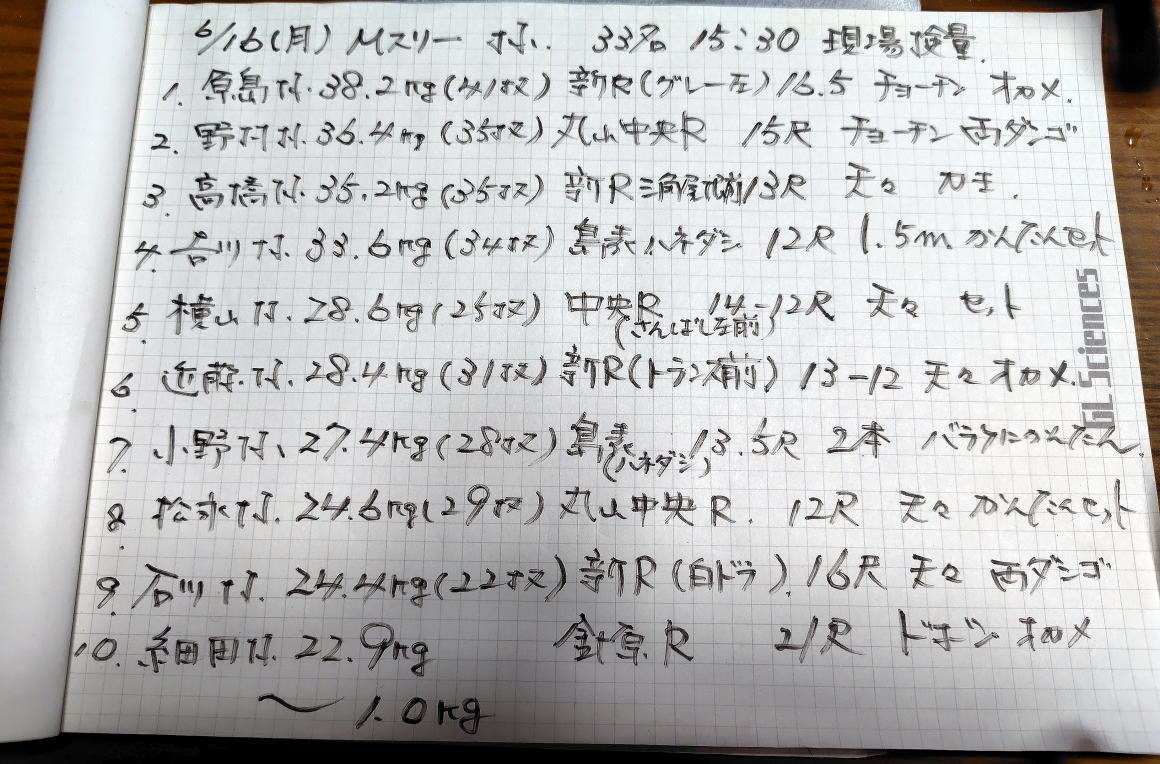 6/16(月) Mスリー サハ. 33名 15:30 現場検量
1. 原島サハ. 38.2kg(41枚) 新R(グレー左) 16.5 チョーチン オカメ.
2. 野村サハ. 36.4kg(35枚) 丸山中央R 15尺 チョーチン 両ダンゴ
3. 高橋サハ. 35.2kg(35枚) 新R三角屋根前13尺 天々 カキ.
4. 吉川サハ. 33.6kg(34枚) 島表ハネダシ 12尺 1.5m かんたんセット
5. 横山サハ. 28.6kg(25枚) 中央R (さんばし左前) 14-12尺 天々 セット
6. 近藤サハ. 28.4kg(31枚) 新R(トランス前) 13-12 天々 オカメ.
7. 小野サハ. 27.4kg(28枚) 島表(ハネダシ) 13.5尺 2本 バラケにかんたん
8. 松永サハ. 24.6kg(29枚) 丸山中央R. 12尺 天々 かんたんセット
9. 石川サハ. 24.4kg(22枚) 新R(白ドラ). 16尺 天々 両ダンゴ
10. 細田サハ. 22.9kg 針原R 21尺 ドボン オカメ
〜 1.0kg
GL Sciences